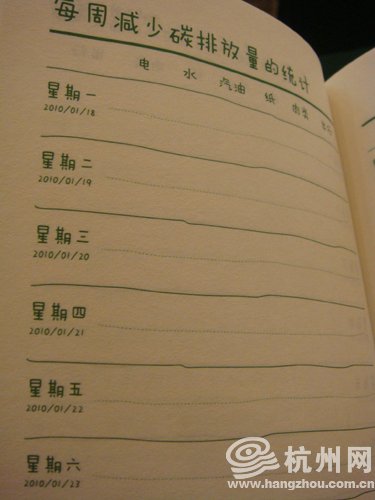 每周减少碳排放量的统计
电 水 汽油 纸 肉类
星期一
2010/01/18
星期二
2010/01/19
星期三
2010/01/20
星期四
2010/01/21
星期五
2010/01/22
星期六
2010/01/23
杭州网
www.hangzhou.com.cn